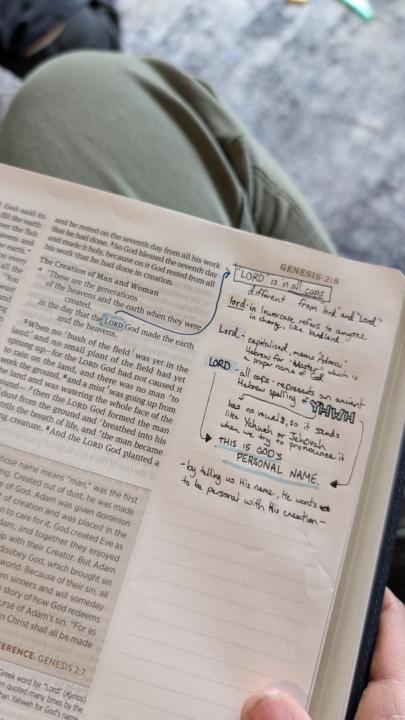 GENESIS 2:8
God said to
fill the earth
over the fish
and he rested on the seventh day from all his work
that he had done. ³So God blessed the seventh day
and made it holy, because on it God rested from all
his work that he had done in creation.
The Creation of Man and Woman
⁴ These are the generations
of the heavens and the earth when they were
created,
in the day that the LORD God made the earth
and the heavens.
⁵When no bush of the field was yet in the
land and no small plant of the field had yet
sprung up—for the LORD God had not caused it
to rain on the land, and there was no man to
work the ground, ⁶and a mist was going up from
the land and was watering the whole face of the
ground— ⁷then the LORD God formed the man
of dust from the ground and breathed into his
nostrils the breath of life, and the man became
a living creature. ⁸And the LORD God planted a
whose name means "man," was the first
being. Created out of dust, he was made
of God. Adam was given dominion
of creation and was placed in the
to care for it. God created Eve as
Adam, and together they enjoyed
with their Creator. But Adam
disobey God, which brought sin
world. Because of their sin, all
born sinners and will someday
story of how God redeems
curse of Adam's sin. "For as
in Christ shall all be made
REFERENCE: GENESIS 2:7
Greek word for "Lord" (Kyrios)
quoted many times by the
than Yahweh for God's name
"LORD" is in all CAPS
different from "lord" and "Lord"
lord- in lowercase refers to anyone
in charge, like landlord
Lord- capitalized, means "Adonai",
Hebrew for "Master", which is
a proper name of God
LORD - all caps - represents an ancient
Hebrew spelling of YHWH
has no vowels, so it sounds
like Yahweh or Jehovah
when we try to pronounce it
THIS IS GOD'S
PERSONAL NAME.
-by telling us His name, He wants
to be personal with His creation-